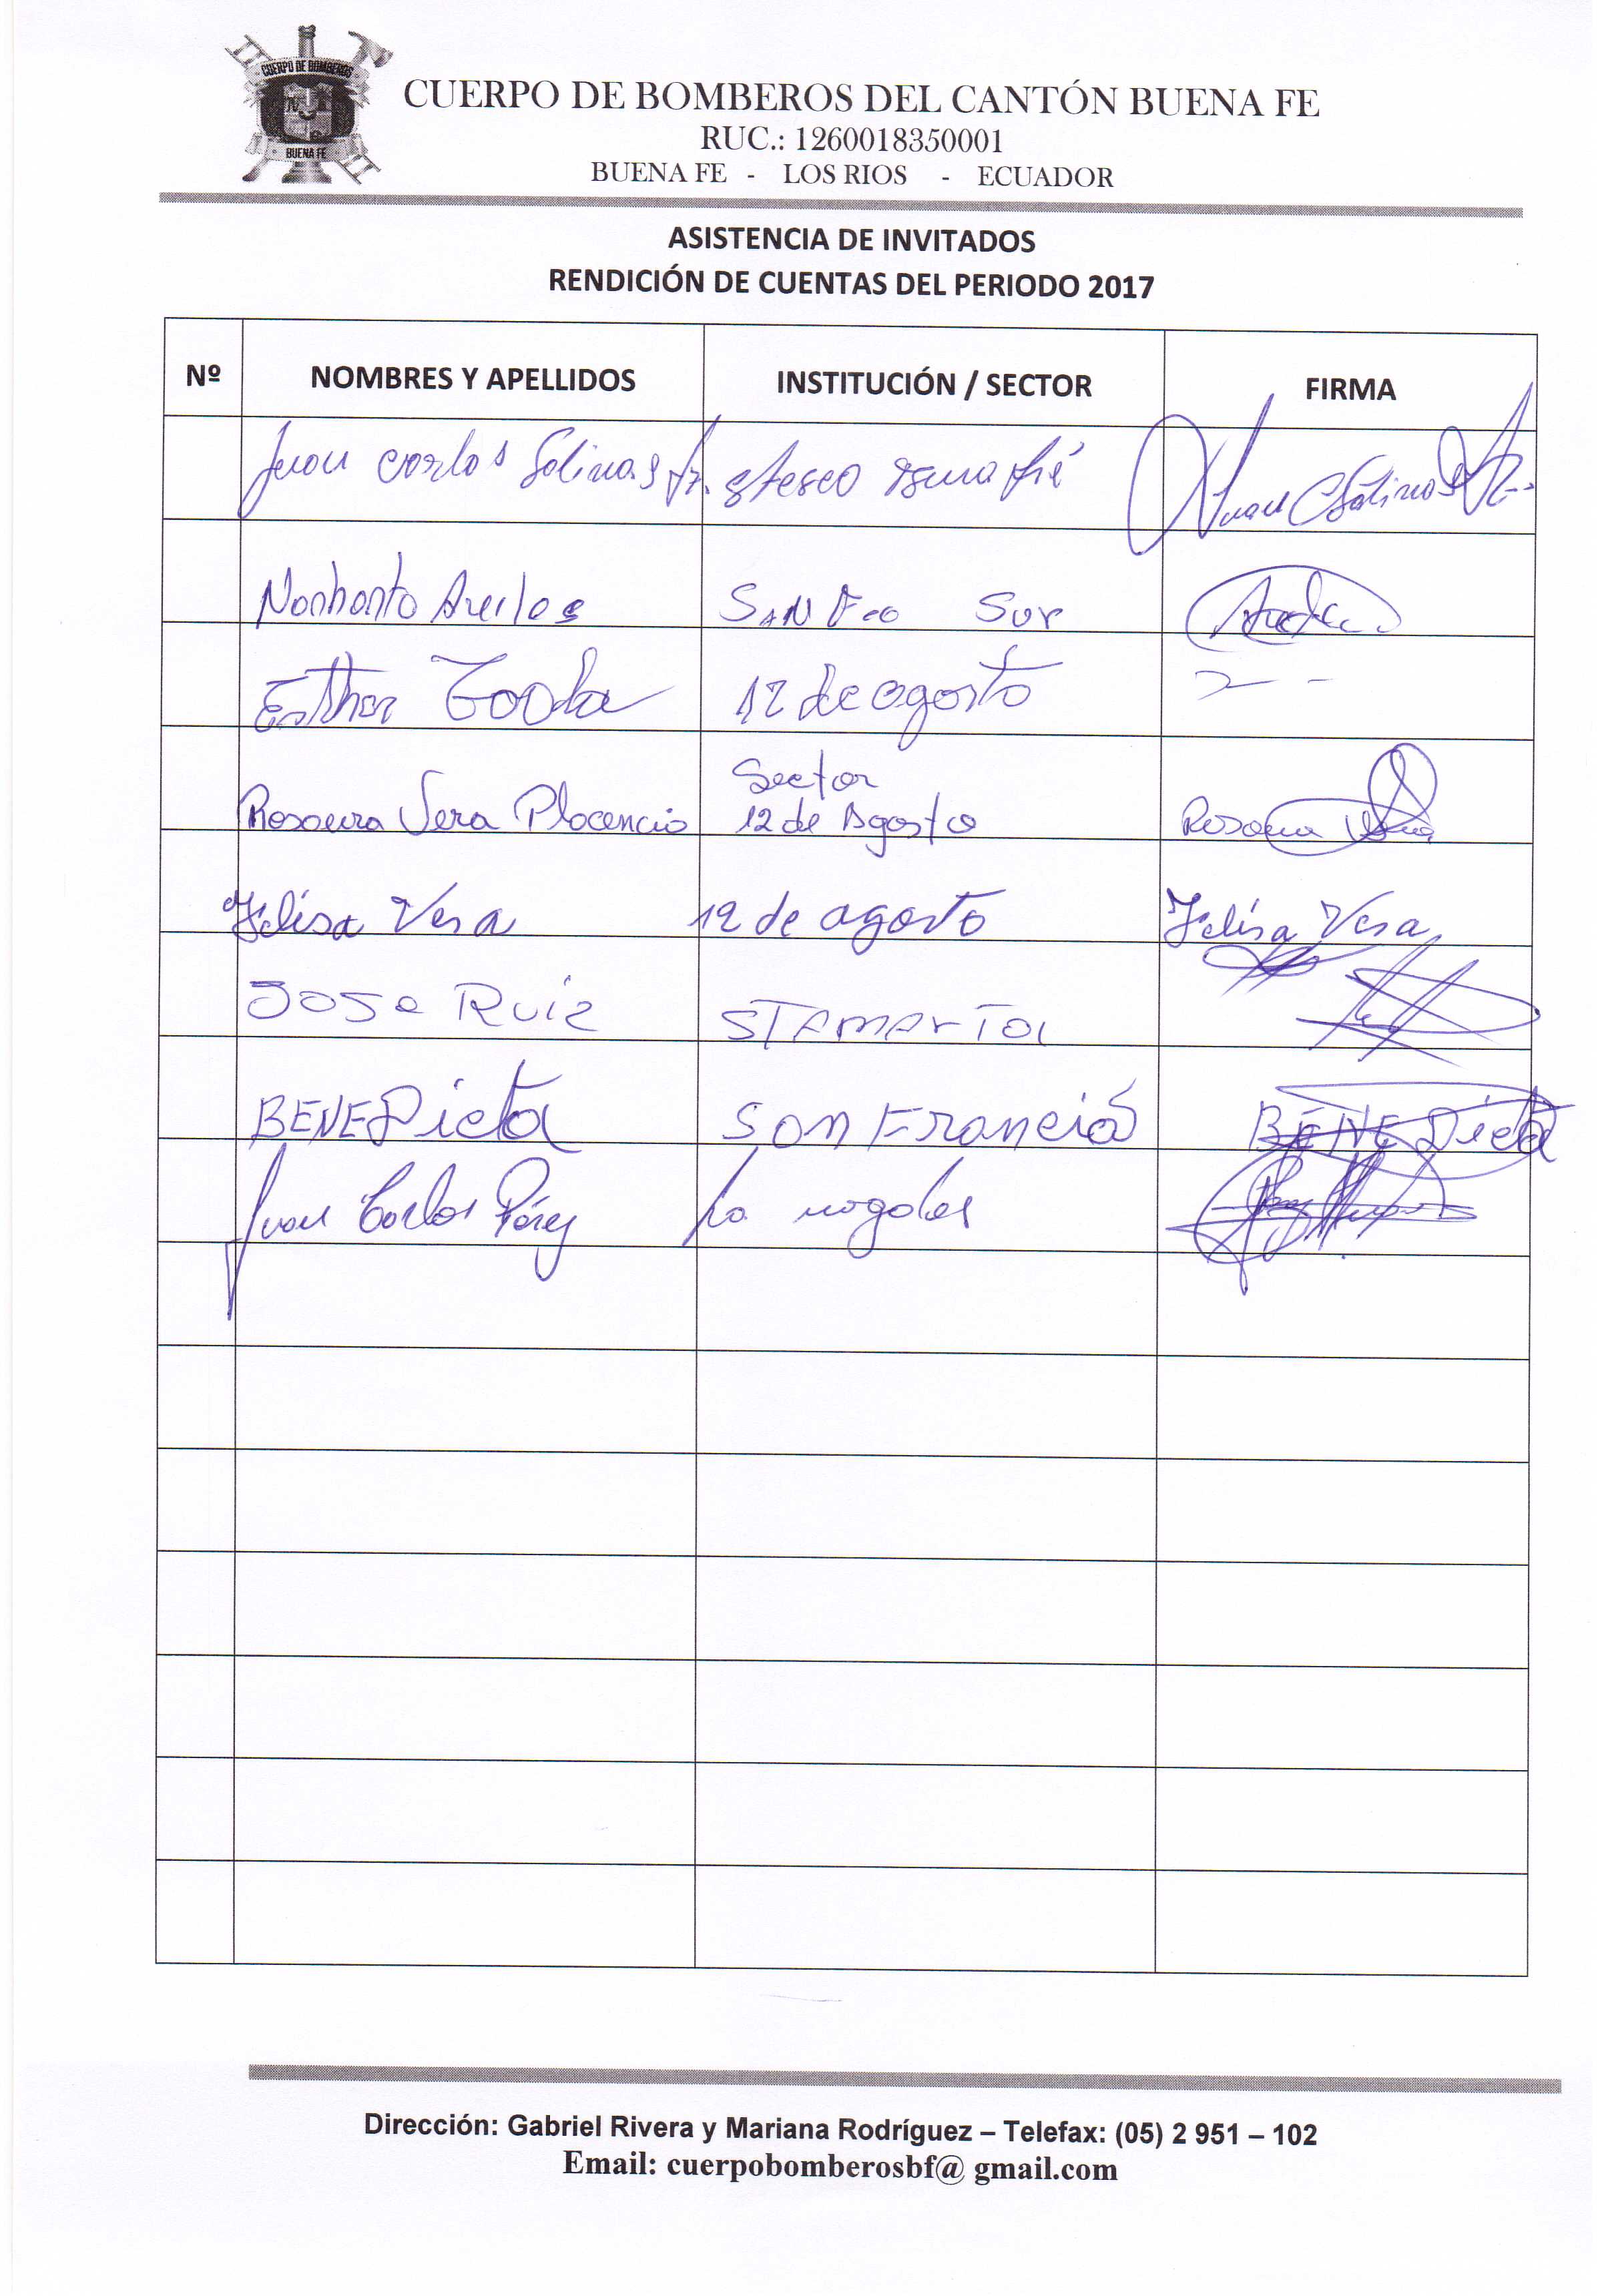 CUERPO DE BOMBEROS
BUENA FE
CUERPO DE BOMBEROS DEL CANTÓN BUENA FE
RUC.: 1260018350001
BUENA FE - LOS RIOS - ECUADOR
ASISTENCIA DE INVITADOS
RENDICIÓN DE CUENTAS DEL PERIODO 2017
Nº NOMBRES Y APELLIDOS INSTITUCIÓN / SECTOR FIRMA
Juan Carlos Salinas Juan C Salinas
SAN Fco Sur
Esther 12 de agosto
Sector
Rosaura Vera Placencio 12 de Agosto Rosaura Vera
Felisa Vera 12 de agosto Felisa Vera
Jose Ruiz STAMARTA
BENEDicta SAN Francis BENEDicta
Juan Carlos Pérez La nogales
Dirección: Gabriel Rivera y Mariana Rodríguez – Telefax: (05) 2 951 – 102
Email: cuerpobomberosbf@ gmail.com